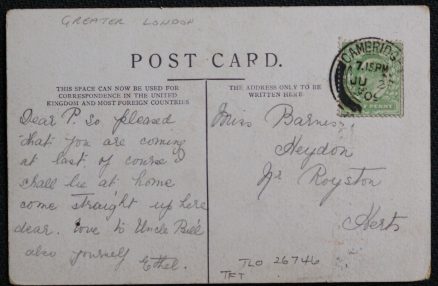 GREATER LONDON
POST CARD.
THIS SPACE CAN NOW BE USED FOR
CORRESPONDENCE IN THE UNITED
KINGDOM AND MOST FOREIGN COUNTRIES
THE ADDRESS ONLY TO BE
WRITTEN HERE
Dear P. So pleased
that you are coming
at last of course I
shall be at home
come straight up here
dear. Love to Uncle Bill
also yourself
Ethel.
Miss Barnes
Heydon
Nr Royston
Herts
CAMBRIDG
7.15PM
JU
PENNY
TLO 26746
TFT